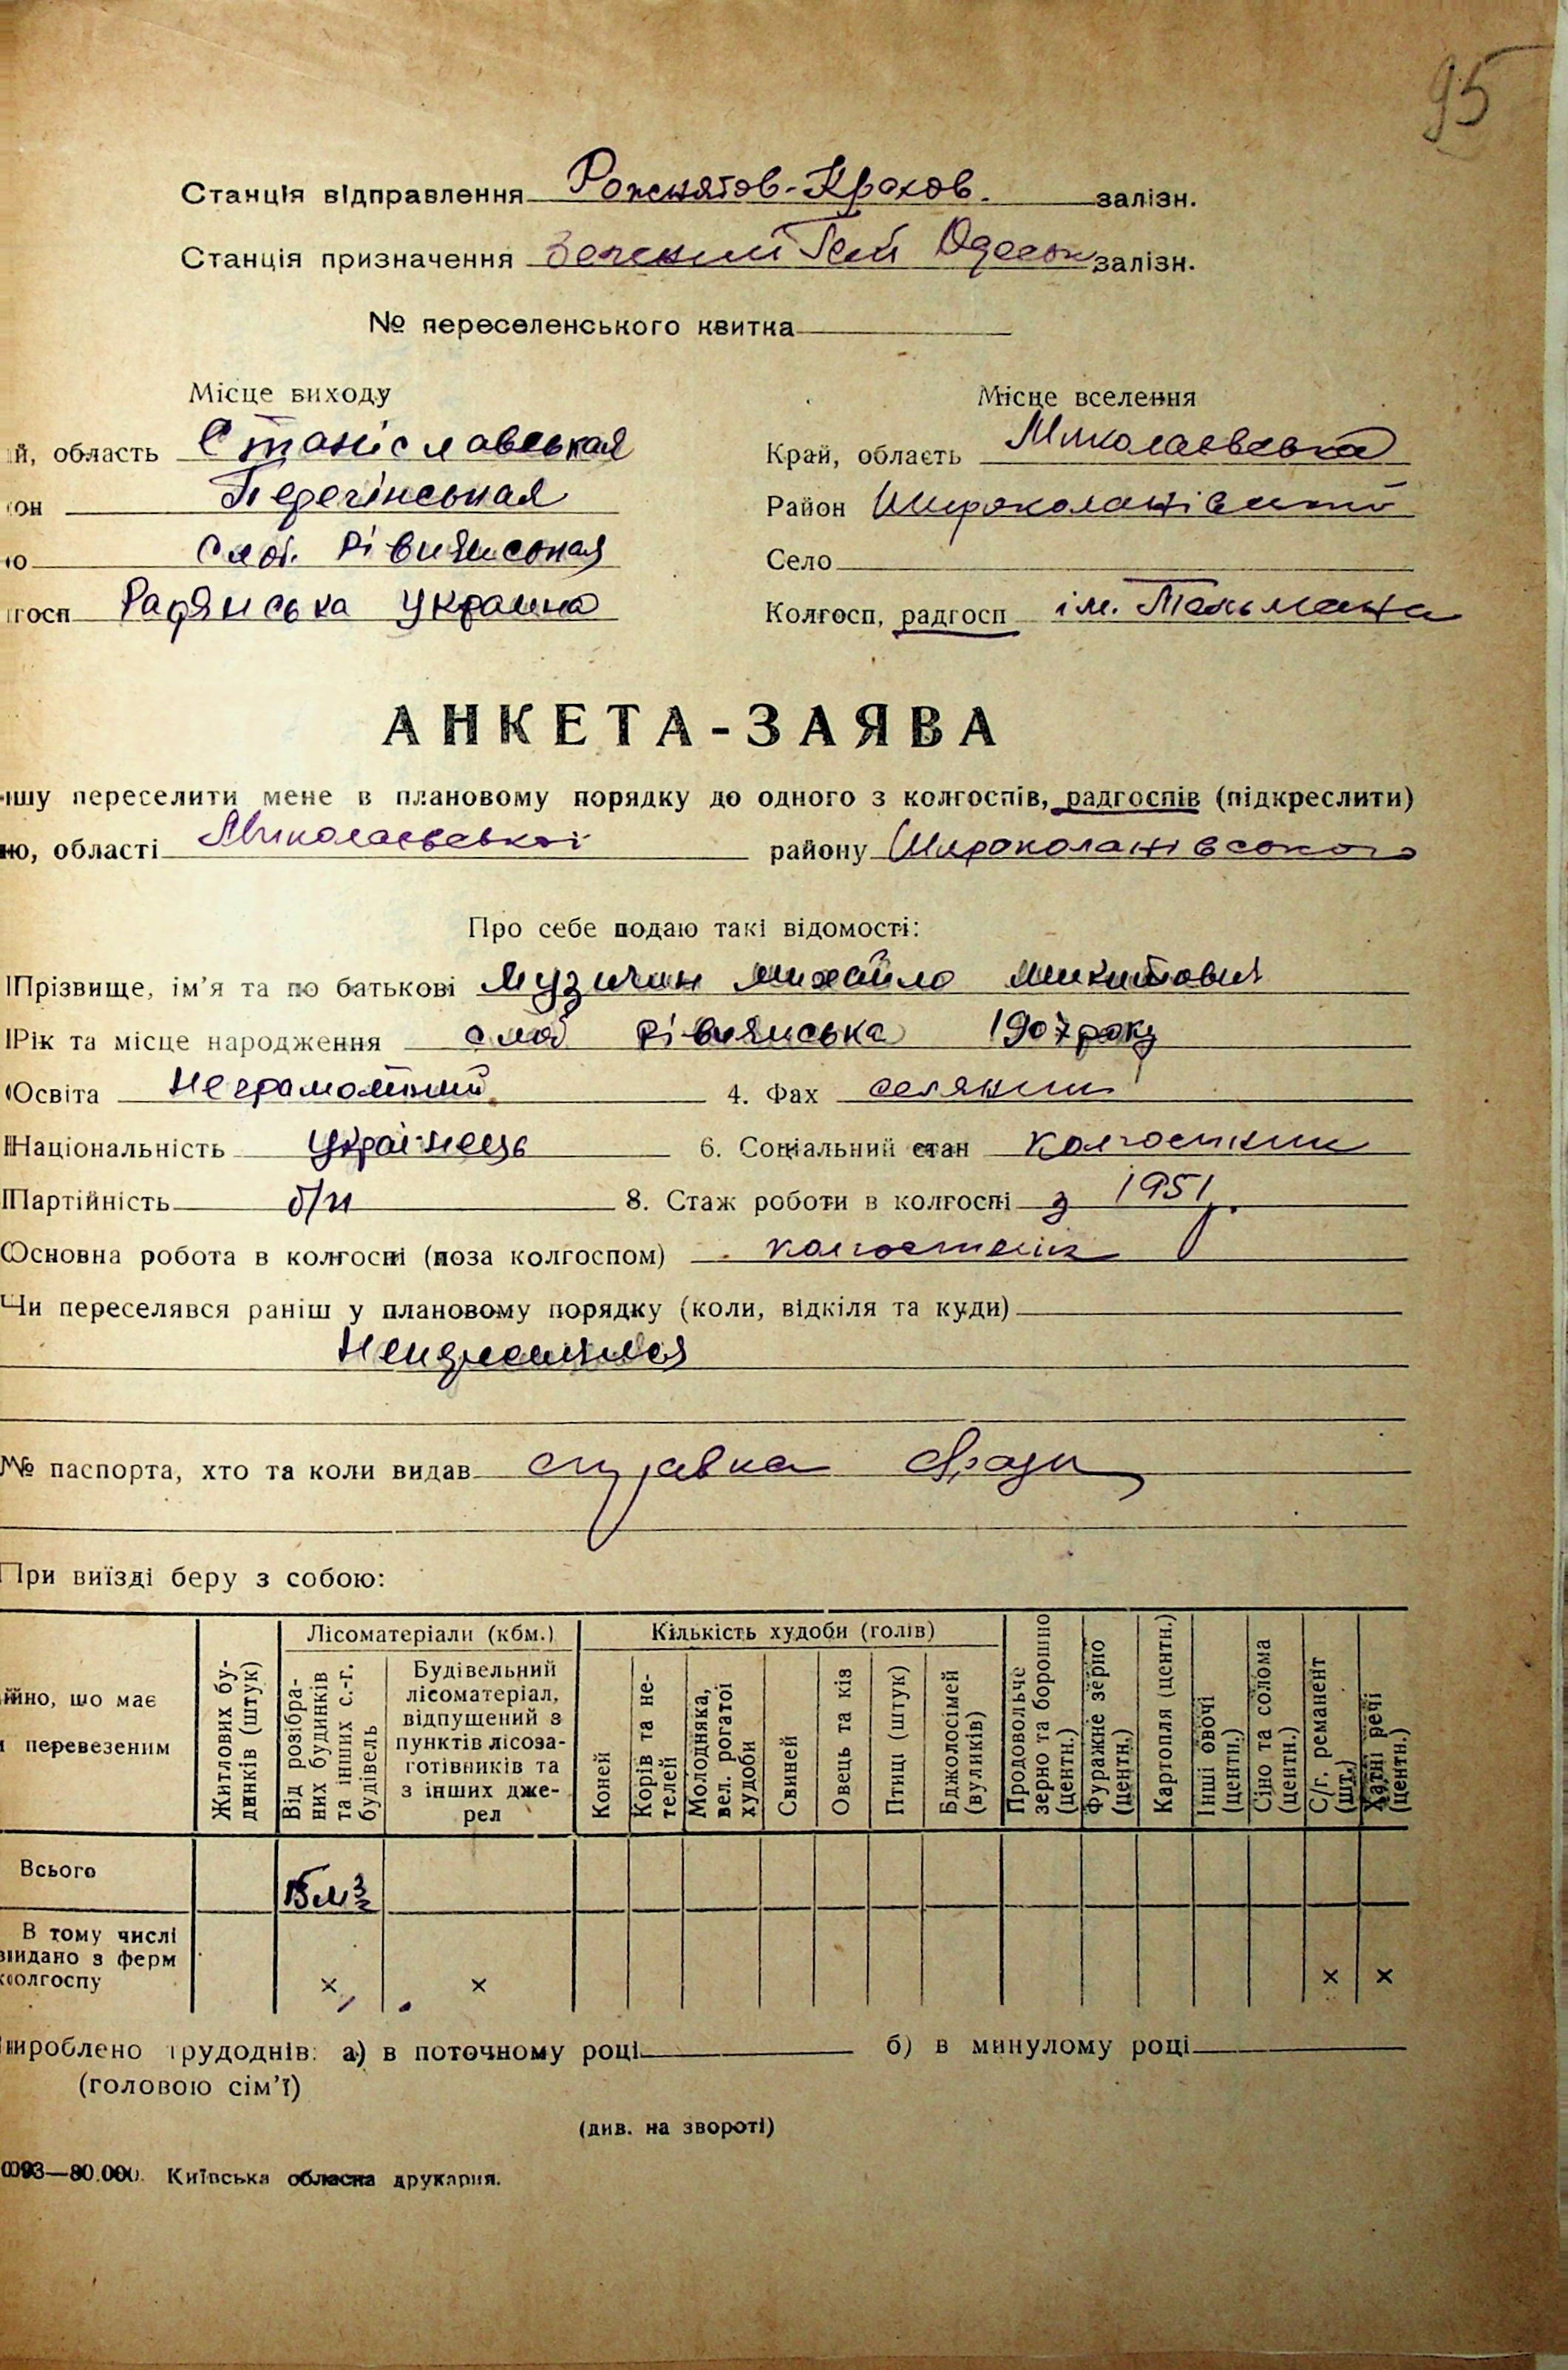 95
Станція відправлення Рожнятов-Крехов. залізн.
Станція призначення Зелений Гай Одеськ залізн.
№ переселенського квитка
Місце виходу
Місце вселення
й, область Станіславськая
Край, область Миколаєвська
он Перегінськая
Район Широколанівський
о Слоб. Рівнянськая
Село
госп Радянська Украина
Колгосп, радгосп ім. Тельмана
АНКЕТА-ЗАЯВА
шу переселити мене в плановому порядку до одного з колгоспів, радгоспів (підкреслити)
ю, області Миколаєвської району Широколанівського
Про себе подаю такі відомості:
Прізвище, ім'я та по батькові Музичин Михайло Микитович
Рік та місце народження слоб Рівнянська 1907 року
Освіта Неграмотний 4. Фах селянин
Національність Українець 6. Соціальний стан колгоспник
Партійність б/п 8. Стаж роботи в колгоспі з 1951 р.
Основна робота в колгоспі (поза колгоспом) колгоспник
Чи переселявся раніш у плановому порядку (коли, відкіля та куди)
№ паспорта, хто та коли видав справка
При виїзді беру з собою:
йно, що має
перевезеним
Житлових будинків (штук)
Лісоматеріали (кбм.)
Від розібраних будинків та інших с.-г. будівель
Будівельний лісоматеріал, відпущений з пунктів лісозаготівників та з інших джерел
Кількість худоби (голів)
Коней
Корів та нетелей
Молодняка, вел. рогатої худоби
Свиней
Овець та кіз
Птиці (штук)
Бджолосімей (вуликів)
Продовольче зерно та борошно (центн.)
Фуражне зерно (центн.)
Картопля (центн.)
Інші овочі (центн.)
Сіно та солома (центн.)
С/г. реманент (шт.)
Хатні речі (центн.)
Всього 15 м3
В тому числі
видано з ферм
колгоспу × × × ×
вироблено трудоднів: а) в поточному році б) в минулому році
(головою сім'ї)
(див. на звороті)
0093—80.000. Київська обласна друкарня.